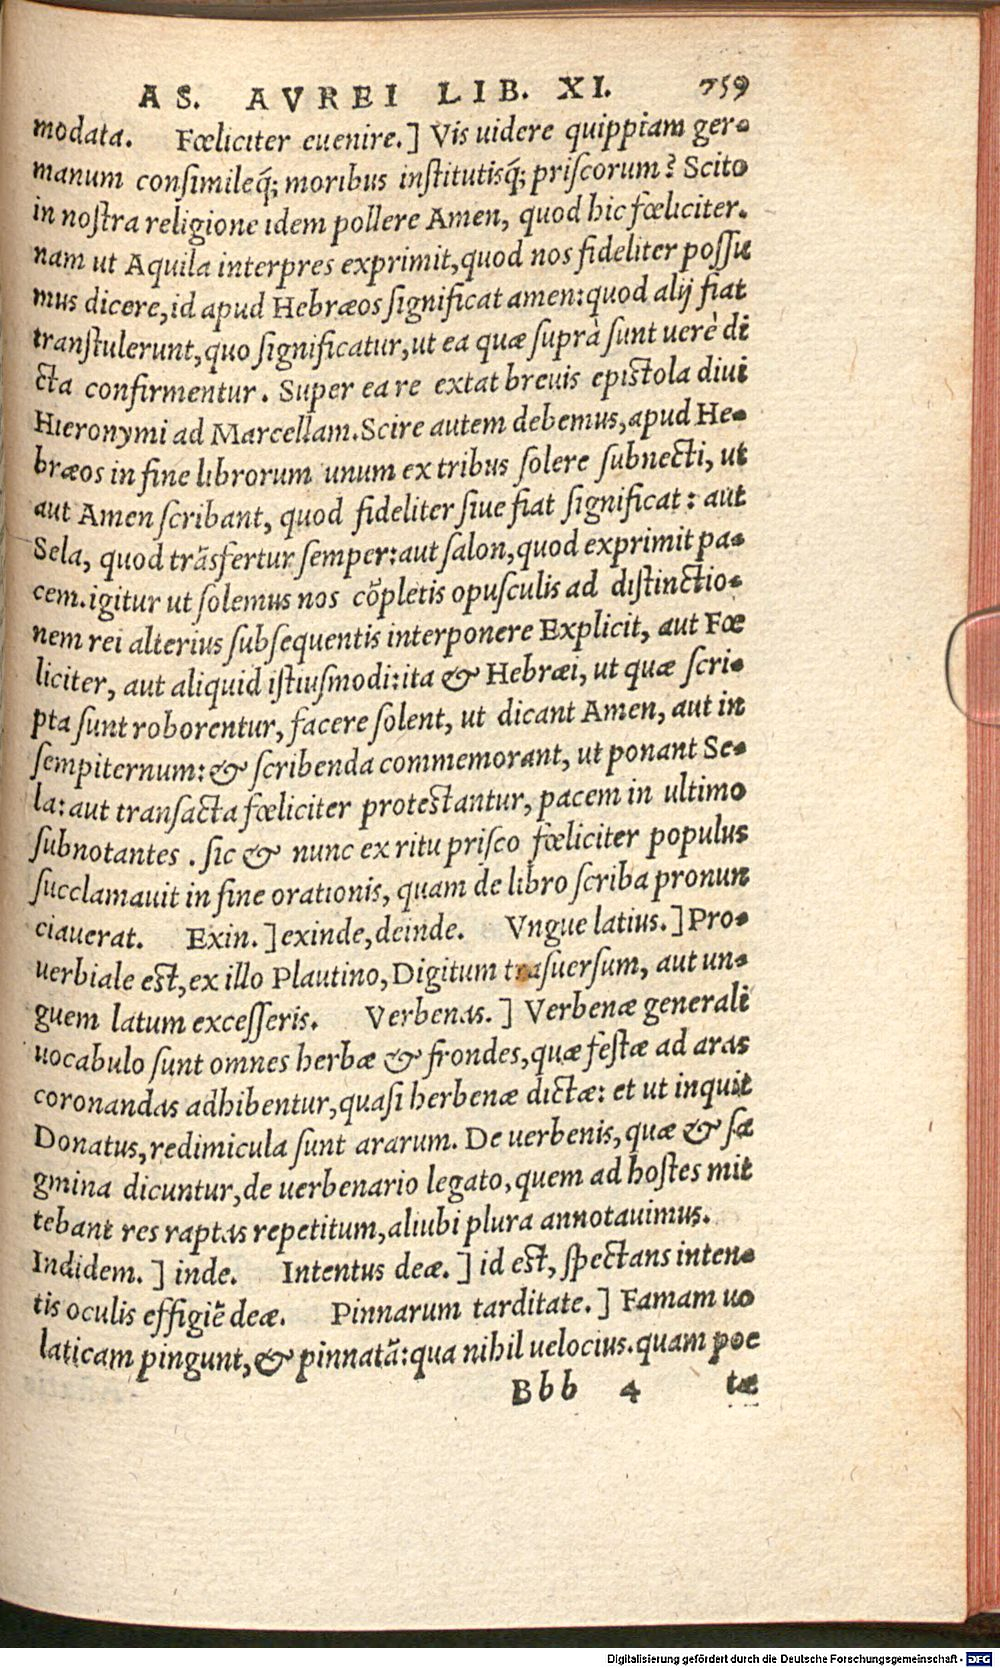 AS. AVREI LIB. XI. 759
modata. Fœliciter euenire.] Vis uidere quippiam ger-
manum consimileq́; moribus institutisq́; priscorum? Scito
in nostra religione idem pollere Amen, quod hic fœliciter.
nam ut Aquila interpres exprimit, quod nos fideliter possu
mus dicere, id apud Hebræos significat amen: quod alij fiat
transtulerunt, quo significatur, ut ea quæ suprà sunt uerè di
cta confirmentur. Super ea re extat breuis epistola diui
Hieronymi ad Marcellam. Scire autem debemus, apud He-
bræos in fine librorum unum ex tribus solere subnecti, ut
aut Amen scribant, quod fideliter siue fiat significat: aut
Sela, quod trãsfertur semper: aut salon, quod exprimit pa-
cem. igitur ut solemus nos cõpletis opusculis ad distinctio-
nem rei alterius subsequentis interponere Explicit, aut Fœ
liciter, aut aliquid istiusmodi: ita & Hebræi, ut quæ scri-
pta sunt roborentur, facere solent, ut dicant Amen, aut in
sempiternum: & scribenda commemorant, ut ponant Se-
la: aut transacta fœliciter protestantur, pacem in ultimo
subnotantes. sic & nunc ex ritu prisco fœliciter populus
succlamauit in fine orationis, quam de libro scriba pronun
ciauerat. Exin.] exinde, deinde. Vngue latius.] Pro-
uerbiale est, ex illo Plautino, Digitum trasuersum, aut un-
guem latum excesseris. Verbenas.] Verbenæ generali
uocabulo sunt omnes herbæ & frondes, quæ festæ ad aras
coronandas adhibentur, quasi herbenæ dictæ: et ut inquit
Donatus, redimicula sunt ararum. De uerbenis, quæ & sa
gmina dicuntur, de uerbenario legato, quem ad hostes mit
tebant res raptas repetitum, aliubi plura annotauimus.
Indidem.] inde. Intentus deæ.] id est, spectans inten-
tis oculis effigiẽ deæ. Pinnarum tarditate.] Famam uo
laticam pingunt, & pinnatã: qua nihil uelocius. quam poe
Bbb 4 tæ
Digitalisierung gefördert durch die Deutsche Forschungsgemeinschaft - DFG